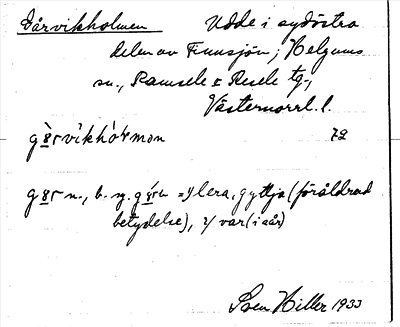 Gårvikholmen Udde i sydöstra
delen av Finnsjön; Helgums
sn., Ramsele o Resele tg.,
Västernorrl. l.
72
n., b. = 1/ lera, gyttja (föråldrad
betydelse), 2/ var (i sår)
Sven Hiller 1933